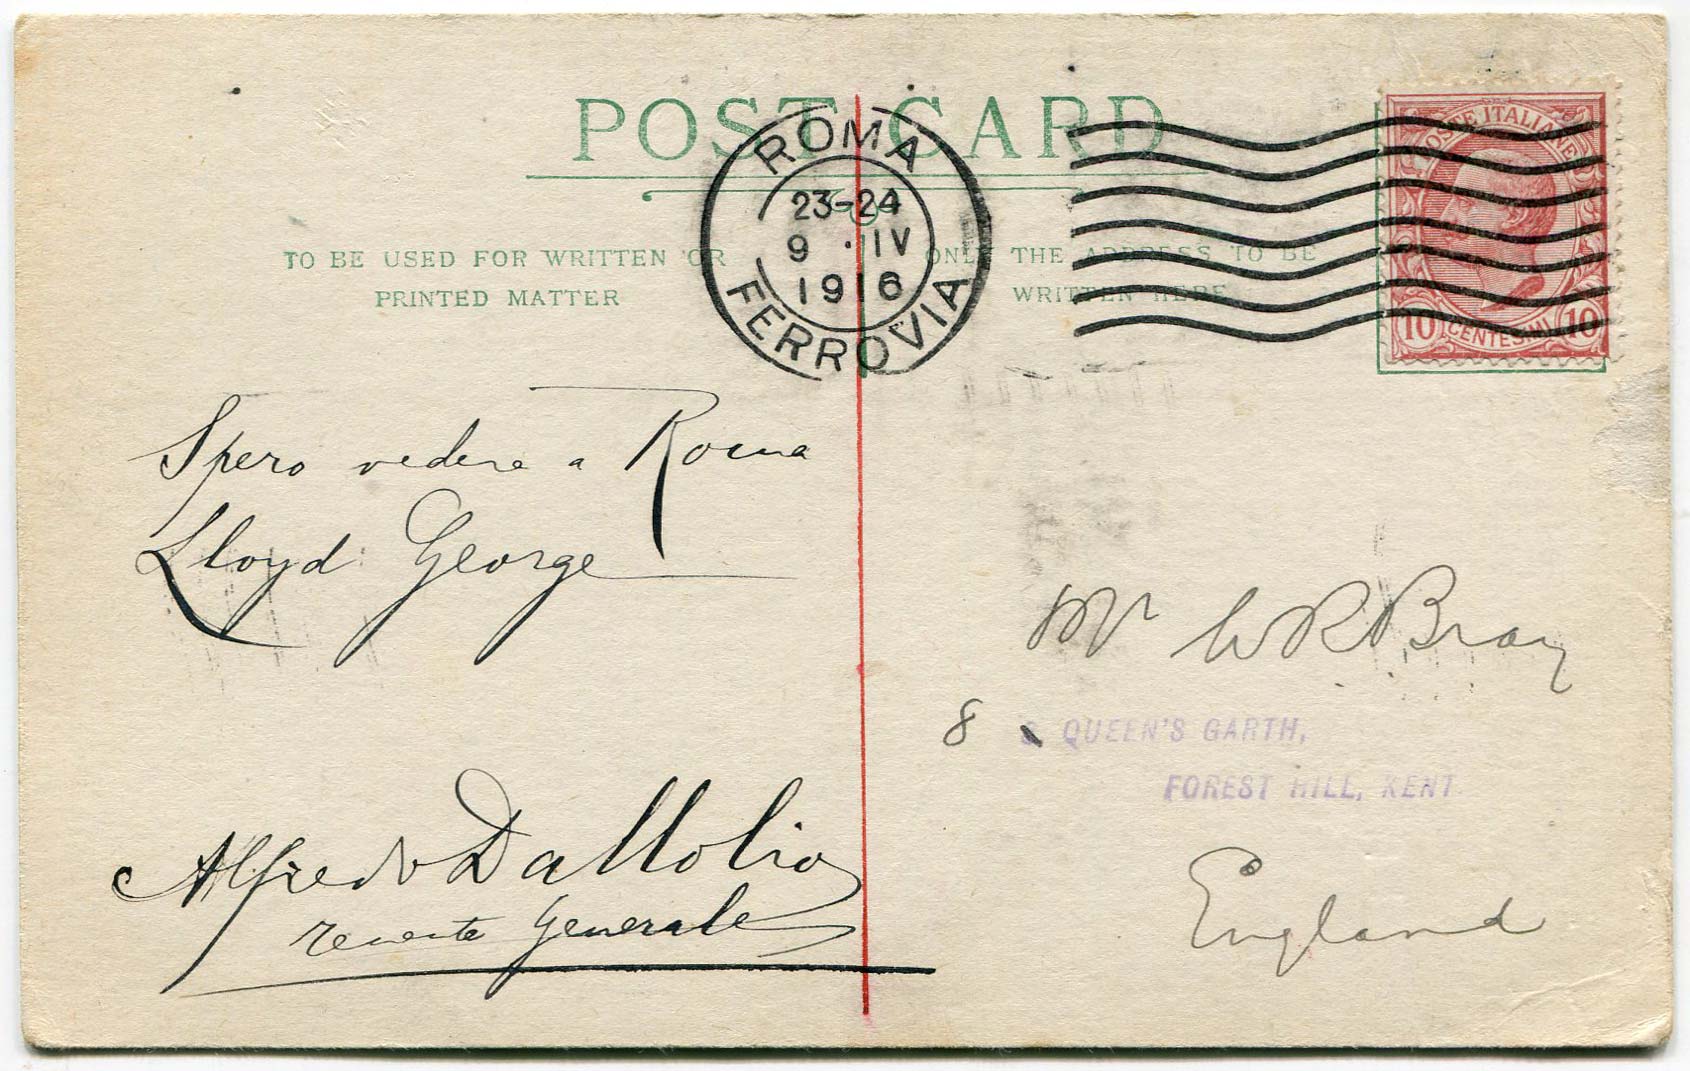 POST CARD
TO BE USED FOR WRITTEN OR
PRINTED MATTER
ONLY THE ADDRESS TO BE
WRITTEN HERE
ROMA
23-24
9 · IV
1916
FERROVIA
POSTE ITALIANE
10 CENTESIMI 10
Spero vedere a Roma
Lloyd George
Alfredo Dallolio
Tenente Generale
Mr W R Bray
8 QUEEN'S GARTH,
FOREST HILL, KENT
England